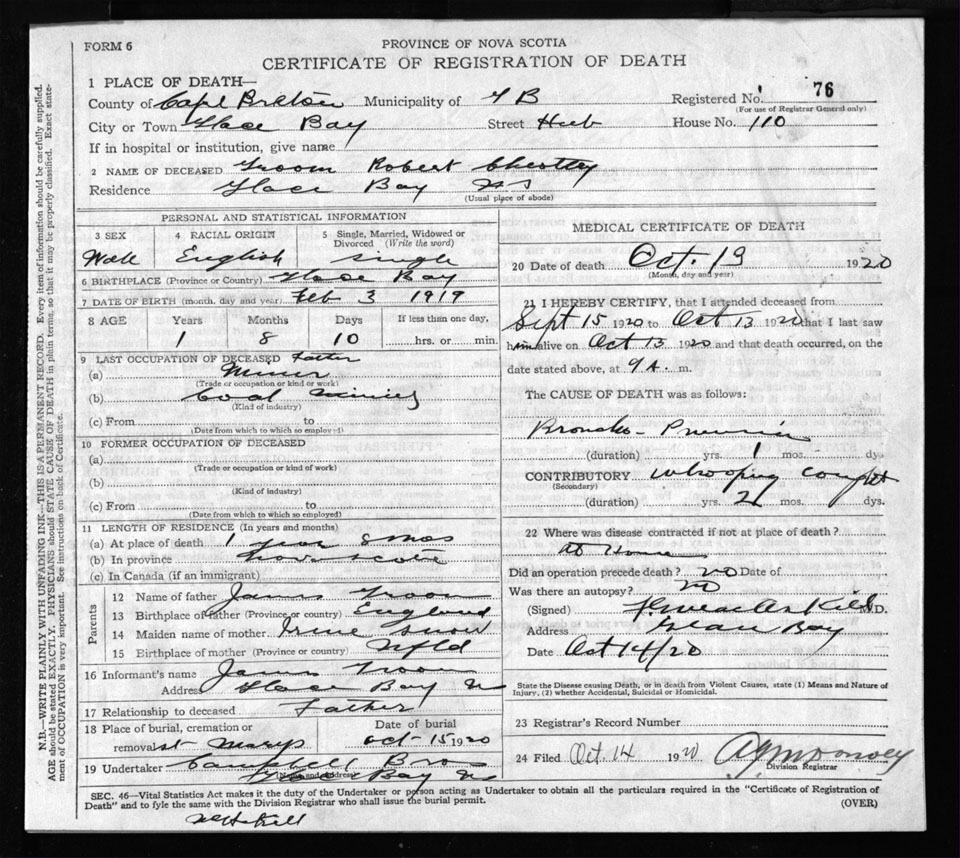 FORM 6
PROVINCE OF NOVA SCOTIA
CERTIFICATE OF REGISTRATION OF DEATH
1 PLACE OF DEATH—
County of Cape Breton Municipality of G B Registered No. 76
(For use of Registrar General only)
City or Town Glace Bay Street Hub House No. 110
If in hospital or institution, give name
2 NAME OF DECEASED Groom Robert
Residence Glace Bay NS
(Usual place of abode)
PERSONAL AND STATISTICAL INFORMATION
3 SEX 4 RACIAL ORIGIN 5 Single, Married, Widowed or Divorced (Write the word)
Male English Single
6 BIRTHPLACE (Province or Country) Glace Bay
7 DATE OF BIRTH (month, day and year) Feb 3 1919
8 AGE Years Months Days If less than one day,
1 8 10 hrs. or min.
9 LAST OCCUPATION OF DECEASED Father
(a) Miner
(Trade or occupation or kind of work)
(b) Coal Mining
(Kind of industry)
(c) From to
(Date from which to which so employed)
10 FORMER OCCUPATION OF DECEASED
(a)
(Trade or occupation or kind of work)
(b)
(Kind of industry)
(c) From to
(Date from which to which so employed)
11 LENGTH OF RESIDENCE (In years and months)
(a) At place of death 1 year 8 mos
(b) In province Nova Scotia
(c) In Canada (if an immigrant)
Parents
12 Name of father James Groom
13 Birthplace of father (Province or country) England
14 Maiden name of mother Irene Snow
15 Birthplace of mother (Province or country) Nfld
16 Informant's name James Groom
Address Glace Bay N
17 Relationship to deceased Father
18 Place of burial, cremation or removal St Marys Date of burial Oct 15 1920
19 Undertaker Campbell Bros
(Name and Address) Glace Bay NS
MEDICAL CERTIFICATE OF DEATH
20 Date of death Oct. 13 1920
(Month, day and year)
21 I HEREBY CERTIFY, that I attended deceased from
Sept 15 1920 to Oct 13 1920 that I last saw
him alive on Oct 13 1920 and that death occurred, on the
date stated above, at 9 A. m.
The CAUSE OF DEATH was as follows:
Broncho-Pneumonia
(duration) yrs. 1 mos. dys
CONTRIBUTORY Whooping Cough
(Secondary)
(duration) yrs. 2 mos. dys.
22 Where was disease contracted if not at place of death?
At Home
Did an operation precede death? no Date of
Was there an autopsy? no
(Signed) M.D.
Address Glace Bay
Date Oct 14/20
State the Disease causing Death, or in death from Violent Causes, state (1) Means and Nature of
Injury, (2) whether Accidental, Suicidal or Homicidal.
23 Registrar's Record Number
24 Filed Oct. 14 1920
Division Registrar
SEC. 46—Vital Statistics Act makes it the duty of the Undertaker or person acting as Undertaker to obtain all the particulars required in the "Certificate of Registration of
Death" and to fyle the same with the Division Registrar who shall issue the burial permit. (OVER)
N.B.—WRITE PLAINLY WITH UNFADING INK—THIS IS A PERMANENT RECORD. Every item of information should be carefully supplied.
AGE should be stated EXACTLY. PHYSICIANS should STATE CAUSE OF DEATH in plain terms, so that it may be properly classified. Exact state-
ment of OCCUPATION is very important. See instructions on back of Certificate.